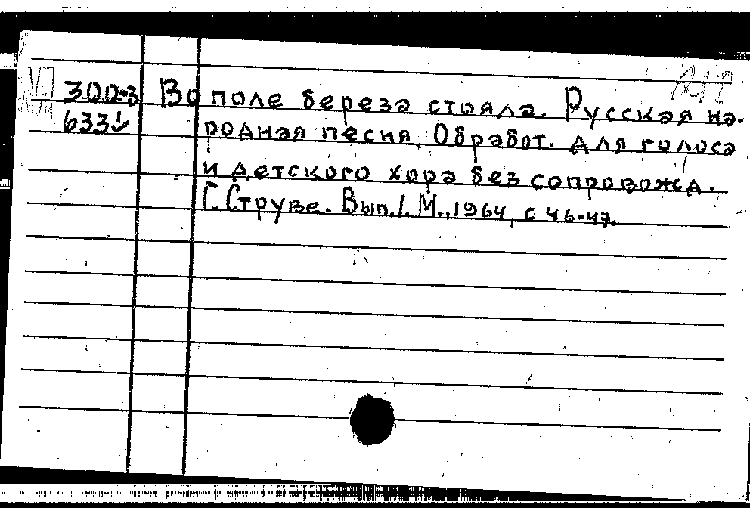 300-3 Во поле береза стояла. Русская на-
633 родная песня. Обработ. для голоса
и детского хора без сопровожд.
Г. Струве. Вып. 1. М., 1964, с 46-47.